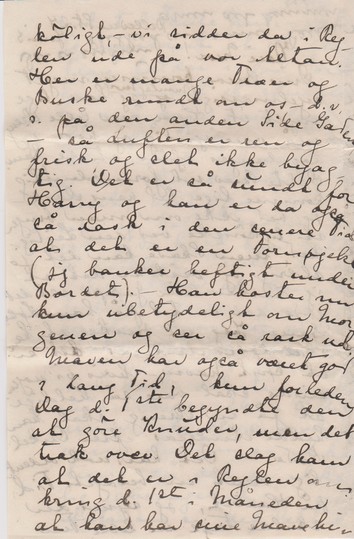 köligt, – vi sidder da i Reg
len ude på vor Altan.
Her er mange Træer og
Buske rundt om os – d.v.
s. på den anden Side Gaden
– så luften er ren og
frisk og slet ikke byag-
tig. Det er så sundt for
Harry og han er da også
så rask i den senere Tid
at det er en Fornøjelse
(jeg banker heftigt under
Bordet). – Han hoster nu
kun ubetydeligt om Mor
genen og ser så rask ud.
Maven har også været god
i lang Tid, kun forleden
Dag d. 1ste begyndte den
at göre Knuder, men det
trak over. Det slog ham
at det er i Reglen om
kring d. 1st i Måneden
at han har sine Mavehi-